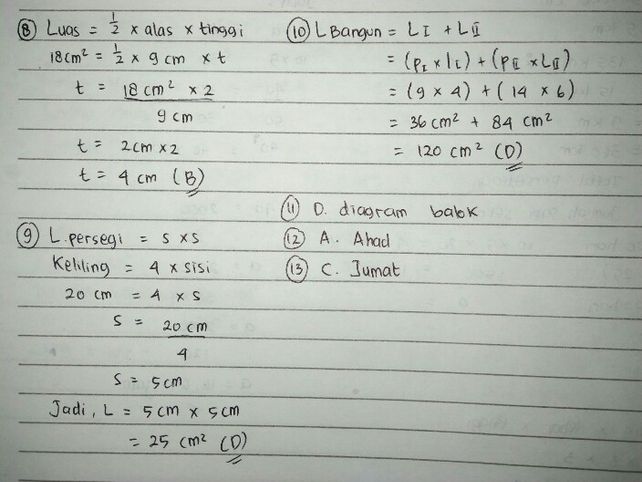 ⑧ Luas = 1/2 × alas × tinggi
18 cm² = 1/2 × 9 cm × t
t = 18 cm² × 2
9 cm
t = 2 cm × 2
t = 4 cm (B)
⑨ L. persegi = s × s
Keliling = 4 × sisi
20 cm = 4 × s
s = 20 cm
4
s = 5 cm
Jadi, L = 5 cm × 5 cm
= 25 cm² (D)
⑩ L Bangun = L I + L II
= (P I × l I) + (P II × L II)
= (9 × 4) + (14 × 6)
= 36 cm² + 84 cm²
= 120 cm² (D)
⑪ D. diagram balok
⑫ A. Ahad
⑬ C. Jumat